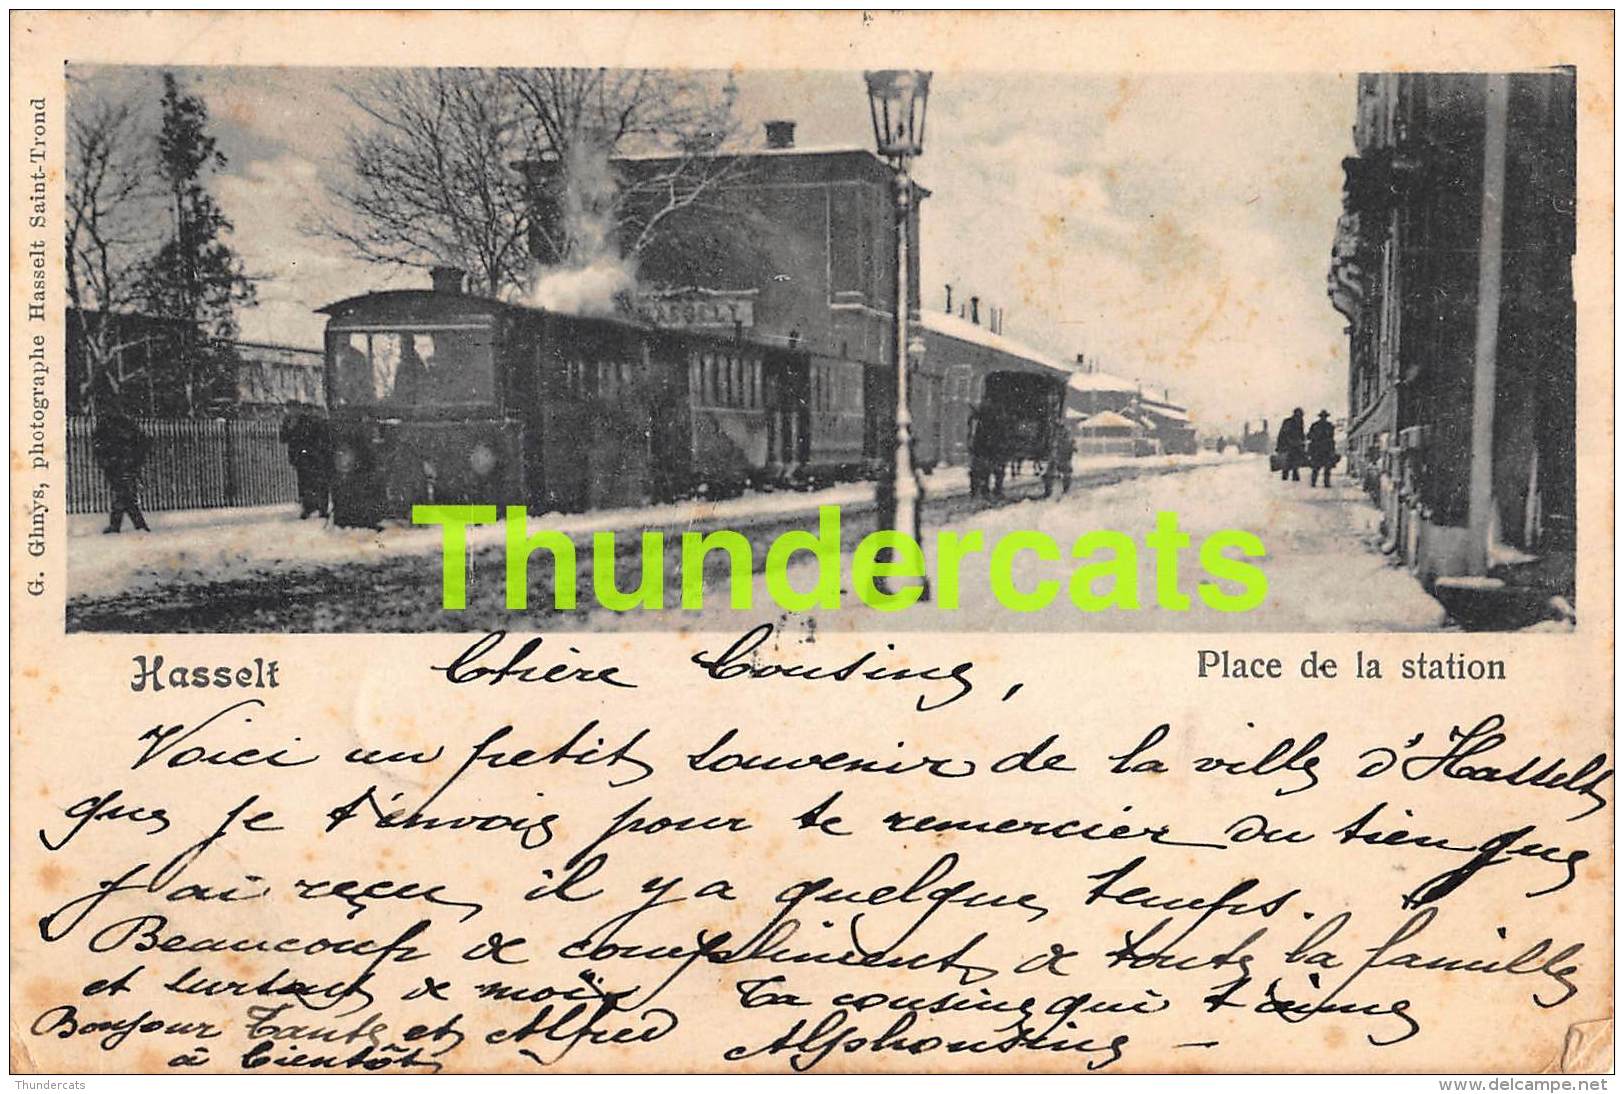 G. Ghnys, photographe Hasselt Saint-Trond
HASSELT
Thundercats
Hasselt
Place de la station
Chère Cousine,
Voici un petit souvenir de la ville d'Hasselt
que je t'envois pour te remercier du tien que
j'ai reçu il y a quelque temps.
Beaucoup de compliment de toute la famille
et surtout de moi Ta cousine qui t'aime
Bonjour Tante et Alfred Alphonsine
à bientôt
Thundercats
www.delcampe.net